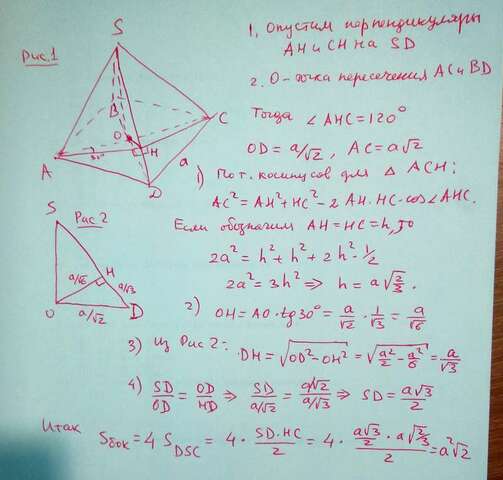 Рис.1
S
B
O
C
H
A
30°
a
D
1. Опустим перпендикуляры
AH и CH на SD
2. O - точка пересечения AC и BD
Тогда ∠AHC = 120°
OD = a/√2, AC = a√2
1) По т. косинусов для △ ACH:
AC² = AH² + HC² - 2 AH·HC·cos∠AHC.
Если обозначим AH = HC = h, то
2a² = h² + h² + 2h²·1/2
2a² = 3h² ⇒ h = a√(2/3).
2) OH = AO·tg30° = a/√2 · 1/√3 = a/√6
Рис 2
S
a/√6
H
a/√3
O
a/√2
D
3) Из Рис 2: DH = √(OD² - OH²) = √(a²/2 - a²/6) = a/√3
4) SD/OD = OD/HD ⇒ SD/(a/√2) = (a/√2)/(a/√3) ⇒ SD = a√3/2
Итак Sбок = 4 S_DSC = 4 · SD·HC/2 = 4 · (a√3/2 · a√(2/3))/2 = a²√2